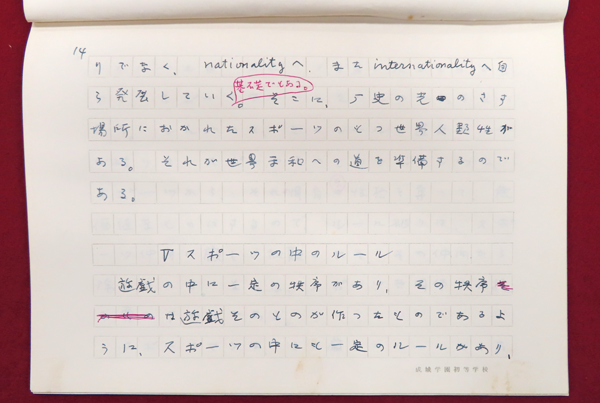 14
りでなく、nationalityへ、またinternationalityへ自
ら発展していく。そこに、歴史の光のさす
基礎でもある。
場所におかれたスポーツのもつ世界人類性が
ある。それが世界平和への道を準備するので
ある。
Ⅴスポーツの中のルール
遊戯の中に一定の秩序があり、その秩序
は遊戯そのものが作ったものであるよ
うに、スポーツの中にも一定のルールがあり、
成城学園初等学校